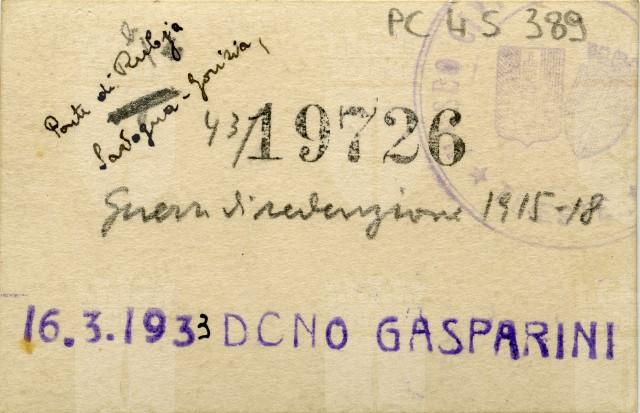 PC 4 S 389
Ponte di Rubbja
Savogna - Gorizia,
43/19726
Guerra di redenzione 1915-18
16.3.1933 DCNO GASPARINI